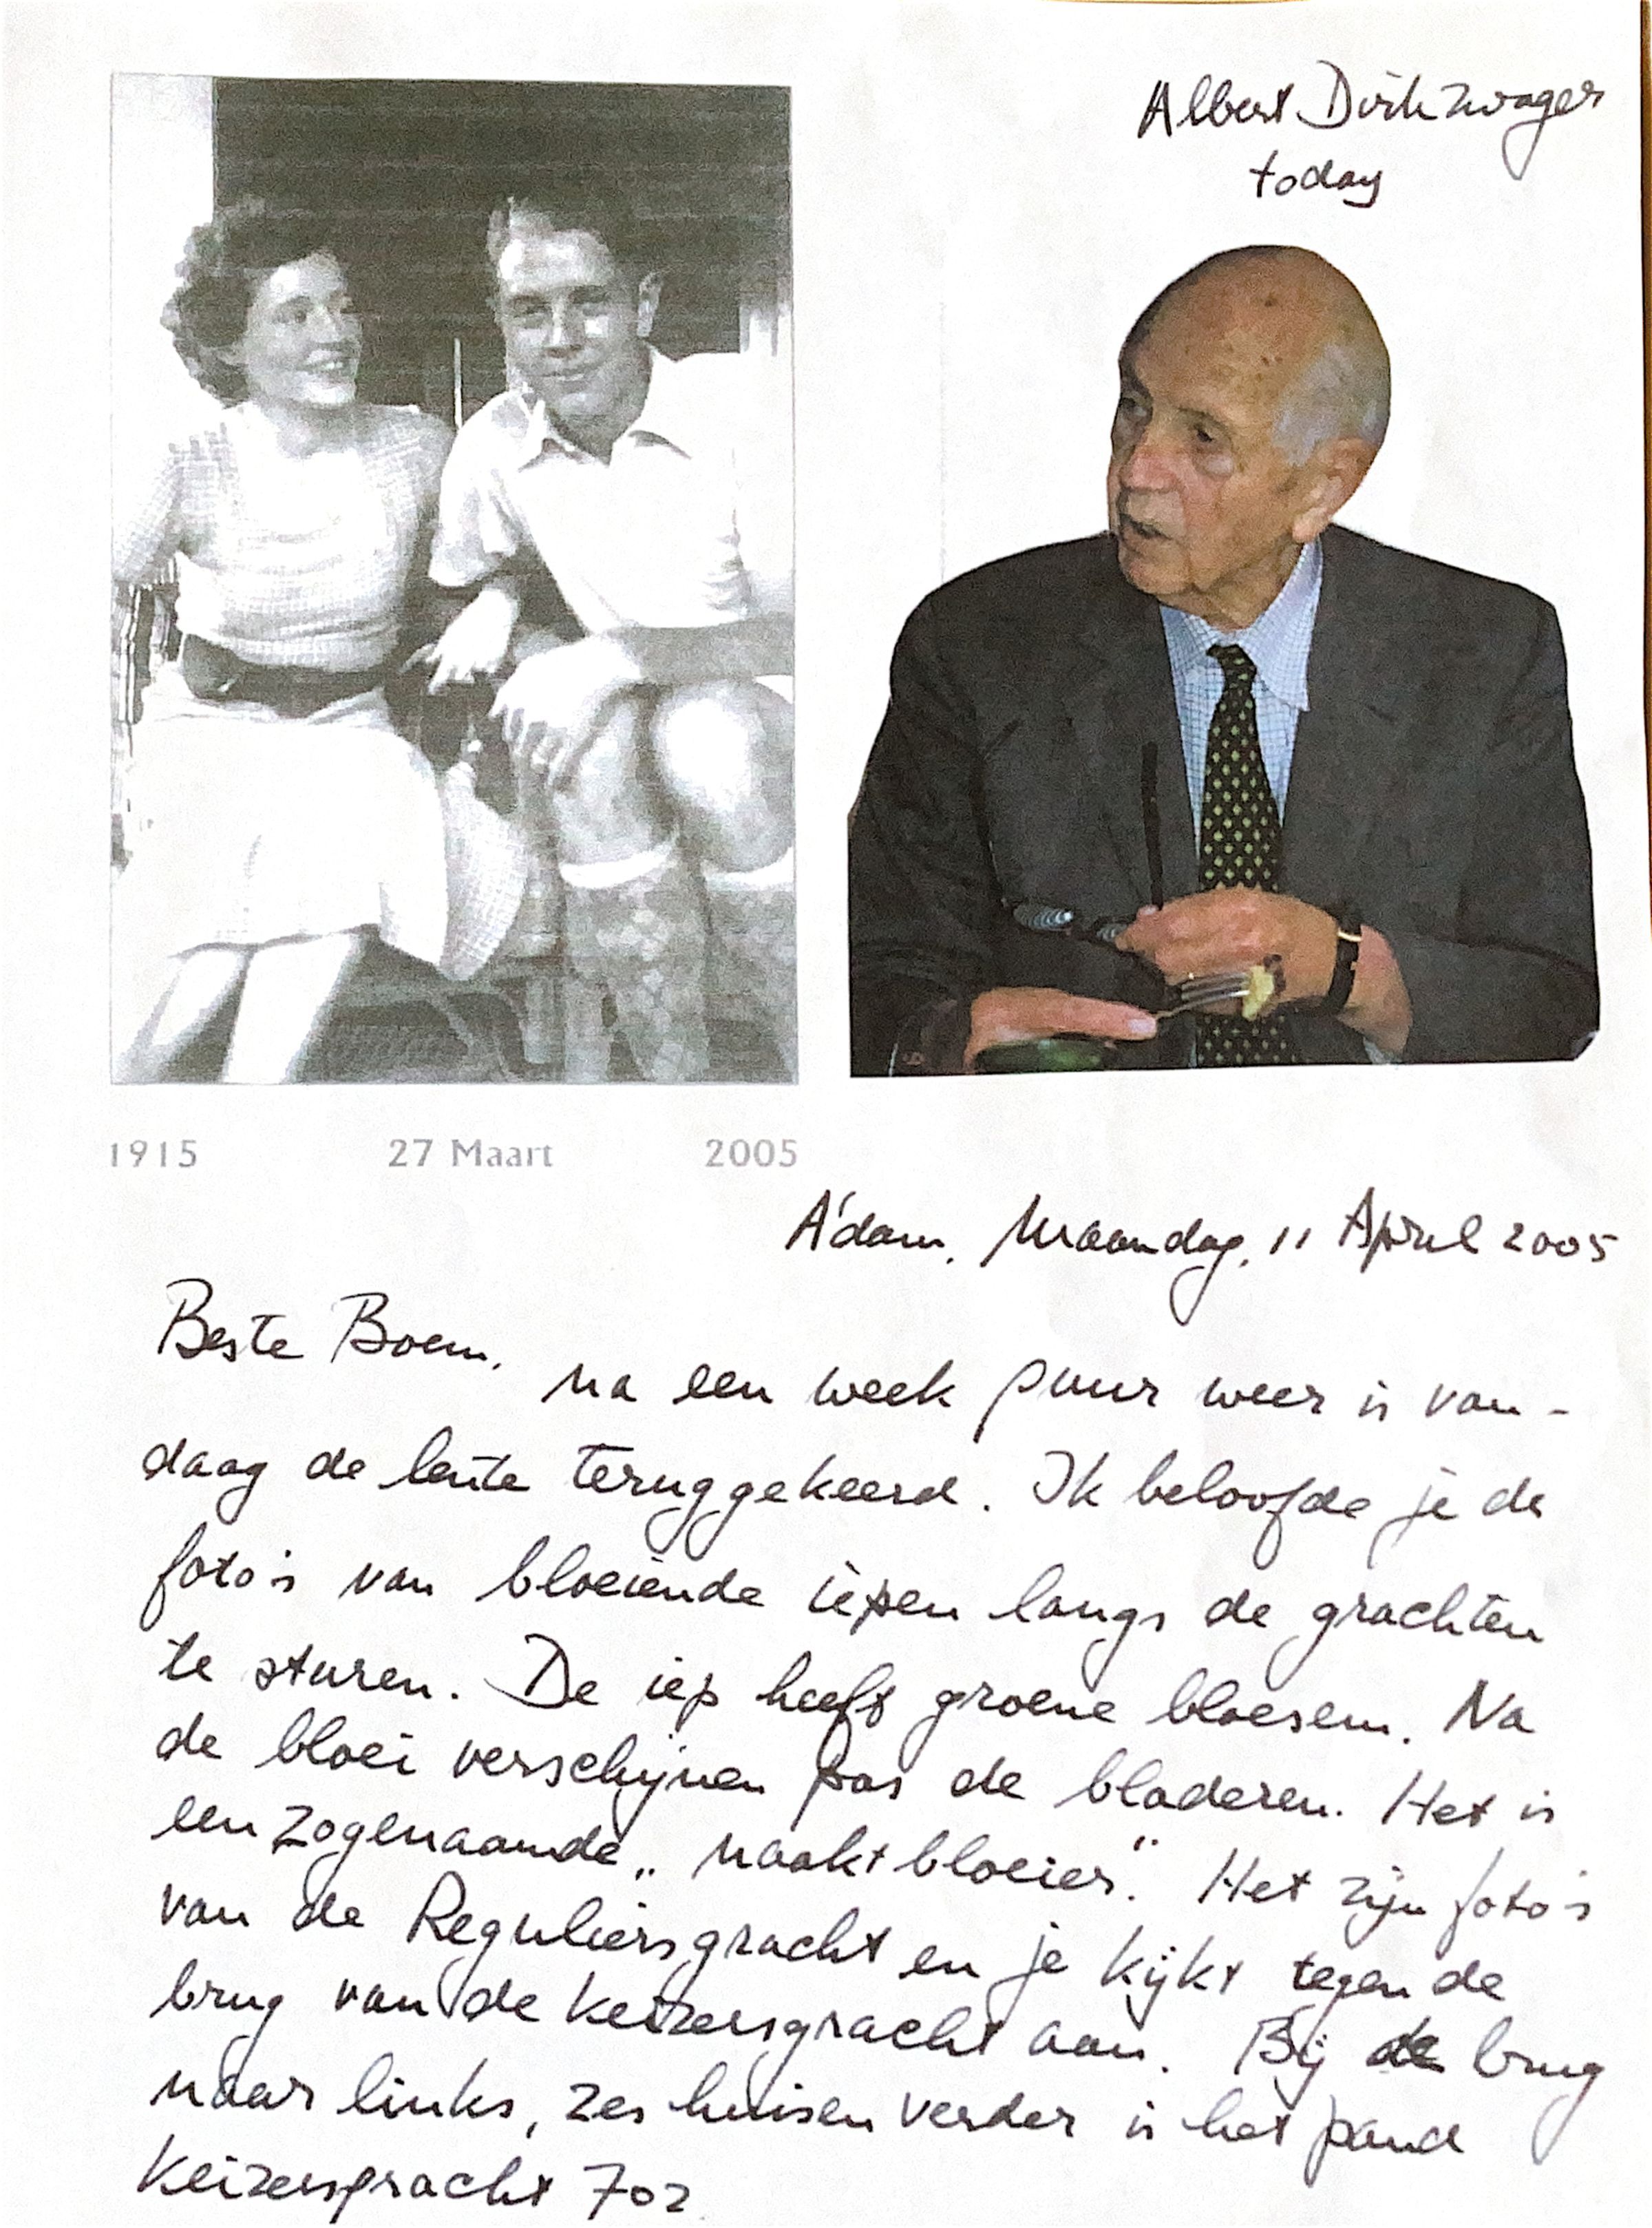 Albert Dirkzwager
today
1915 27 Maart 2005
A'dam, Maandag, 11 April 2005
Beste Boem,
na een week puur weer is van-
daag de lente teruggekeerd. Ik beloofde je de
foto's van bloeiende iepen langs de grachten
te sturen. De iep heeft groene bloesem. Na
de bloei verschijnen pas de bladeren. Het is
een zogenaamde „naaktbloeier". Het zijn foto's
van de Reguliersgracht en je kijkt tegen de
brug van de Keizersgracht aan. Bij de brug
naar links, zes huizen verder is het pand
Keizersgracht 702